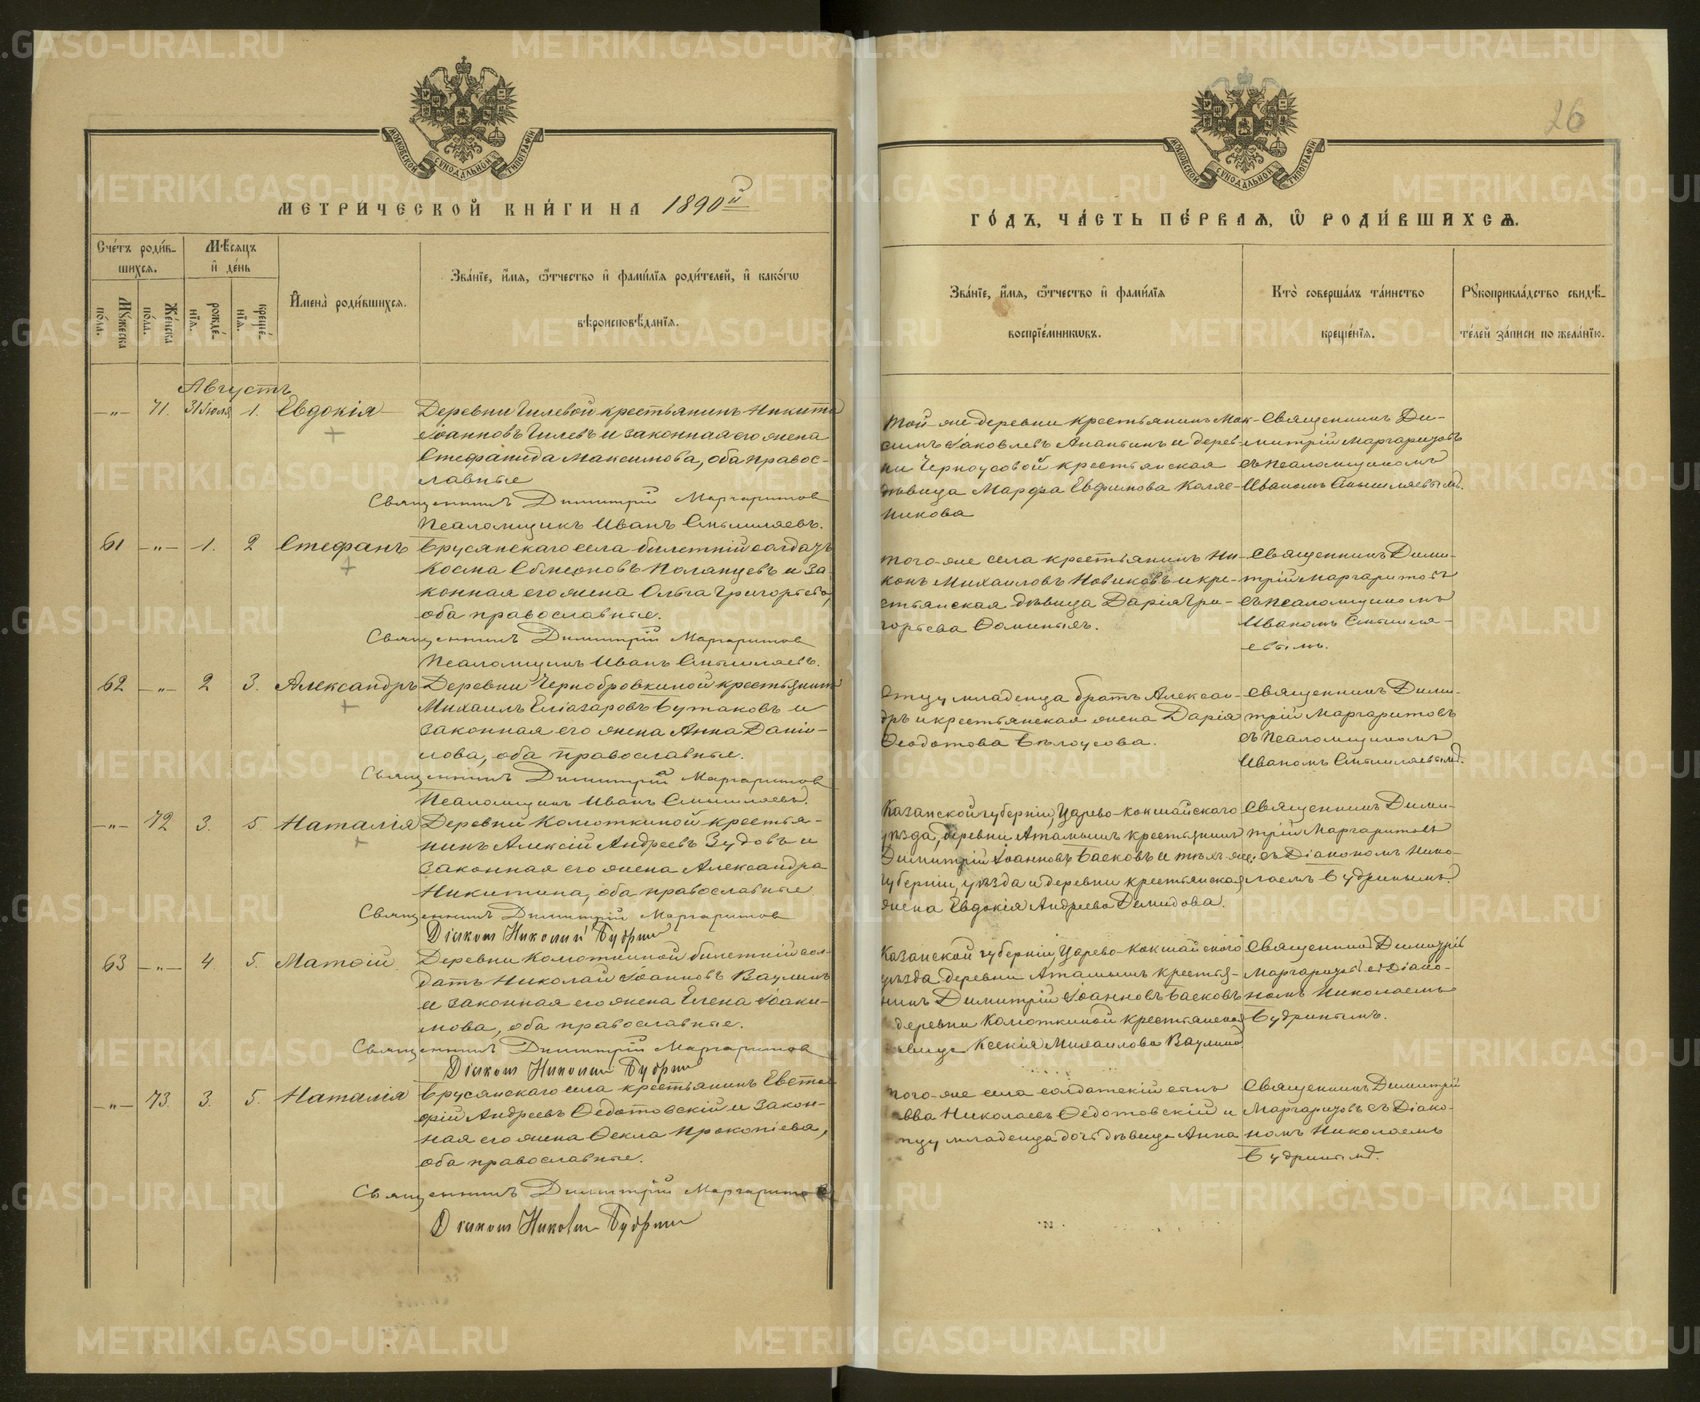 26
МЕТРИ́ЧЕСКОЙ КНИ́ГИ НА 1890й
Сче́тъ роди́в-
шихся.
Мѣ́сяцъ
и҆ де́нь
Му́жеска
по́ла.
Же́нска
по́ла.
рожде́-
нїѧ.
креще́-
нїѧ.
И҆мена̀ роди́вшихсѧ.
Зва́нїе, и҆́мѧ, ѻ҆́тчество и҆ фами́лїѧ роди́телей, и҆ како́гѡ
вѣроисповѣ́данїѧ.
Августъ
—„— 71. 31 Іюля 1. Евдокія
Деревни Гилевой крестьянинъ Никита
Іоанновъ Гилевъ и законная его жена
Стефанида Максимова, оба правос-
лавные
Священникъ Димитрій Маргаритовъ
Псаломщикъ Иванъ Смышляевъ.
61 —„— 1. 2 Стефанъ
Брусянскаго села билетній солдатъ
Косма Симеоновъ Полянцевъ и за-
конная его жена Ольга Григорьева,
оба православные.
Священникъ Димитрій Маргаритовъ
Псаломщикъ Иванъ Смышляевъ.
62 —„— 2 3. Александръ
Деревни Чернобровкиной крестьянинъ
Михаилъ Еліазаровъ Бутаковъ и
законная его жена Анна Даніи-
лова, оба православные.
Священникъ Димитрій Маргаритовъ
Псаломщикъ Иванъ Смышляевъ.
—„— 72 3. 5. Наталія
Деревни Колюткиной крестья-
нинъ Алексій Андреевъ Зудовъ и
законная его жена Александра
Никитина, оба православные
Священникъ Димитрій Маргаритовъ
Діаконъ Николай Будринъ
63 —„— 4. 5. Матѳій
Деревни Колюткиной билетній сол-
датъ Николай Іоанновъ Ваулинъ
и законная его жена Елена Іоаки-
мова, оба православные.
Священникъ Димитрій Маргаритовъ
Діаконъ Николай Будринъ
—„— 73. 3. 5. Наталія
Брусянскаго села крестьянинъ Евста-
фій Андреевъ Ѳедотовскій и закон-
ная его жена Ѳекла Прокопіева,
оба православные.
Священникъ Димитрій Маргаритовъ
Діаконъ Николай Будринъ
ГО́ДЪ, ЧА́СТЬ ПЕ́РВАѦ, Ѡ҆ РОДИ́ВШИХСѦ.
Зва́нїе, и҆́мѧ, ѻ҆́тчество и҆ фами́лїѧ
воспрїе́мникѡвъ.
Кто̀ соверша́лъ та́инство
креще́нїѧ.
Рꙋкоприкла́дство свидѣ́-
телей за́писи по жела́нїю.
Той-же деревни крестьянинъ Мак-
симъ Іаковлевъ и дерев-
ни Черноусовой крестьянская
дѣвица Марѳа Евфимова Коляс-
никова
Священникъ Ди-
митрій Маргаритовъ
съ псаломщикомъ
Иваномъ Смышляевымъ.
того-же села крестьянинъ Ни-
конъ Михаиловъ Новиковъ и кре-
стьянская дѣвица Дарія Гри-
горьева Ѳоминыхъ.
Священникъ Дими-
трій Маргаритовъ
съ псаломщикомъ
Иваномъ Смышля-
евымъ.
Отцу младенца братъ Алексан-
дръ и крестьянская жена Дарія
Ѳеодотова Бѣлоусова.
Священникъ Дими-
трій Маргаритовъ
съ псаломщикомъ
Иваномъ Смышляевымъ.
Казанской губерніи Царево-кокшайскаго
уѣзда, деревни крестьянинъ
Димитрій Іоанновъ Басковъ и тѣхъ же
губерніи, уѣзда и деревни крестьянская
жена Евдокія Андреева Демидова.
Священникъ Дими-
трій Маргаритовъ
съ Діакономъ Нико-
лаемъ Будринымъ.
Казанской губерніи Царево-кокшайскаго
уѣзда деревни крестья-
нинъ Димитрій Іоанновъ Басковъ
деревни Колюткиной крестьянская
дѣвица Ксенія Михаилова Ваулина
Священникъ Димитрій
Маргаритовъ съ Діако-
номъ Николаемъ
Будринымъ.
того-же села солдатскій сынъ
Савва Николаевъ Ѳедотовскій и
отцу младенца дочь дѣвица Анна
Священникъ Димитрій
Маргаритовъ съ Діако-
номъ Николаемъ
Будринымъ.
METRIKI.GASO-URAL.RU